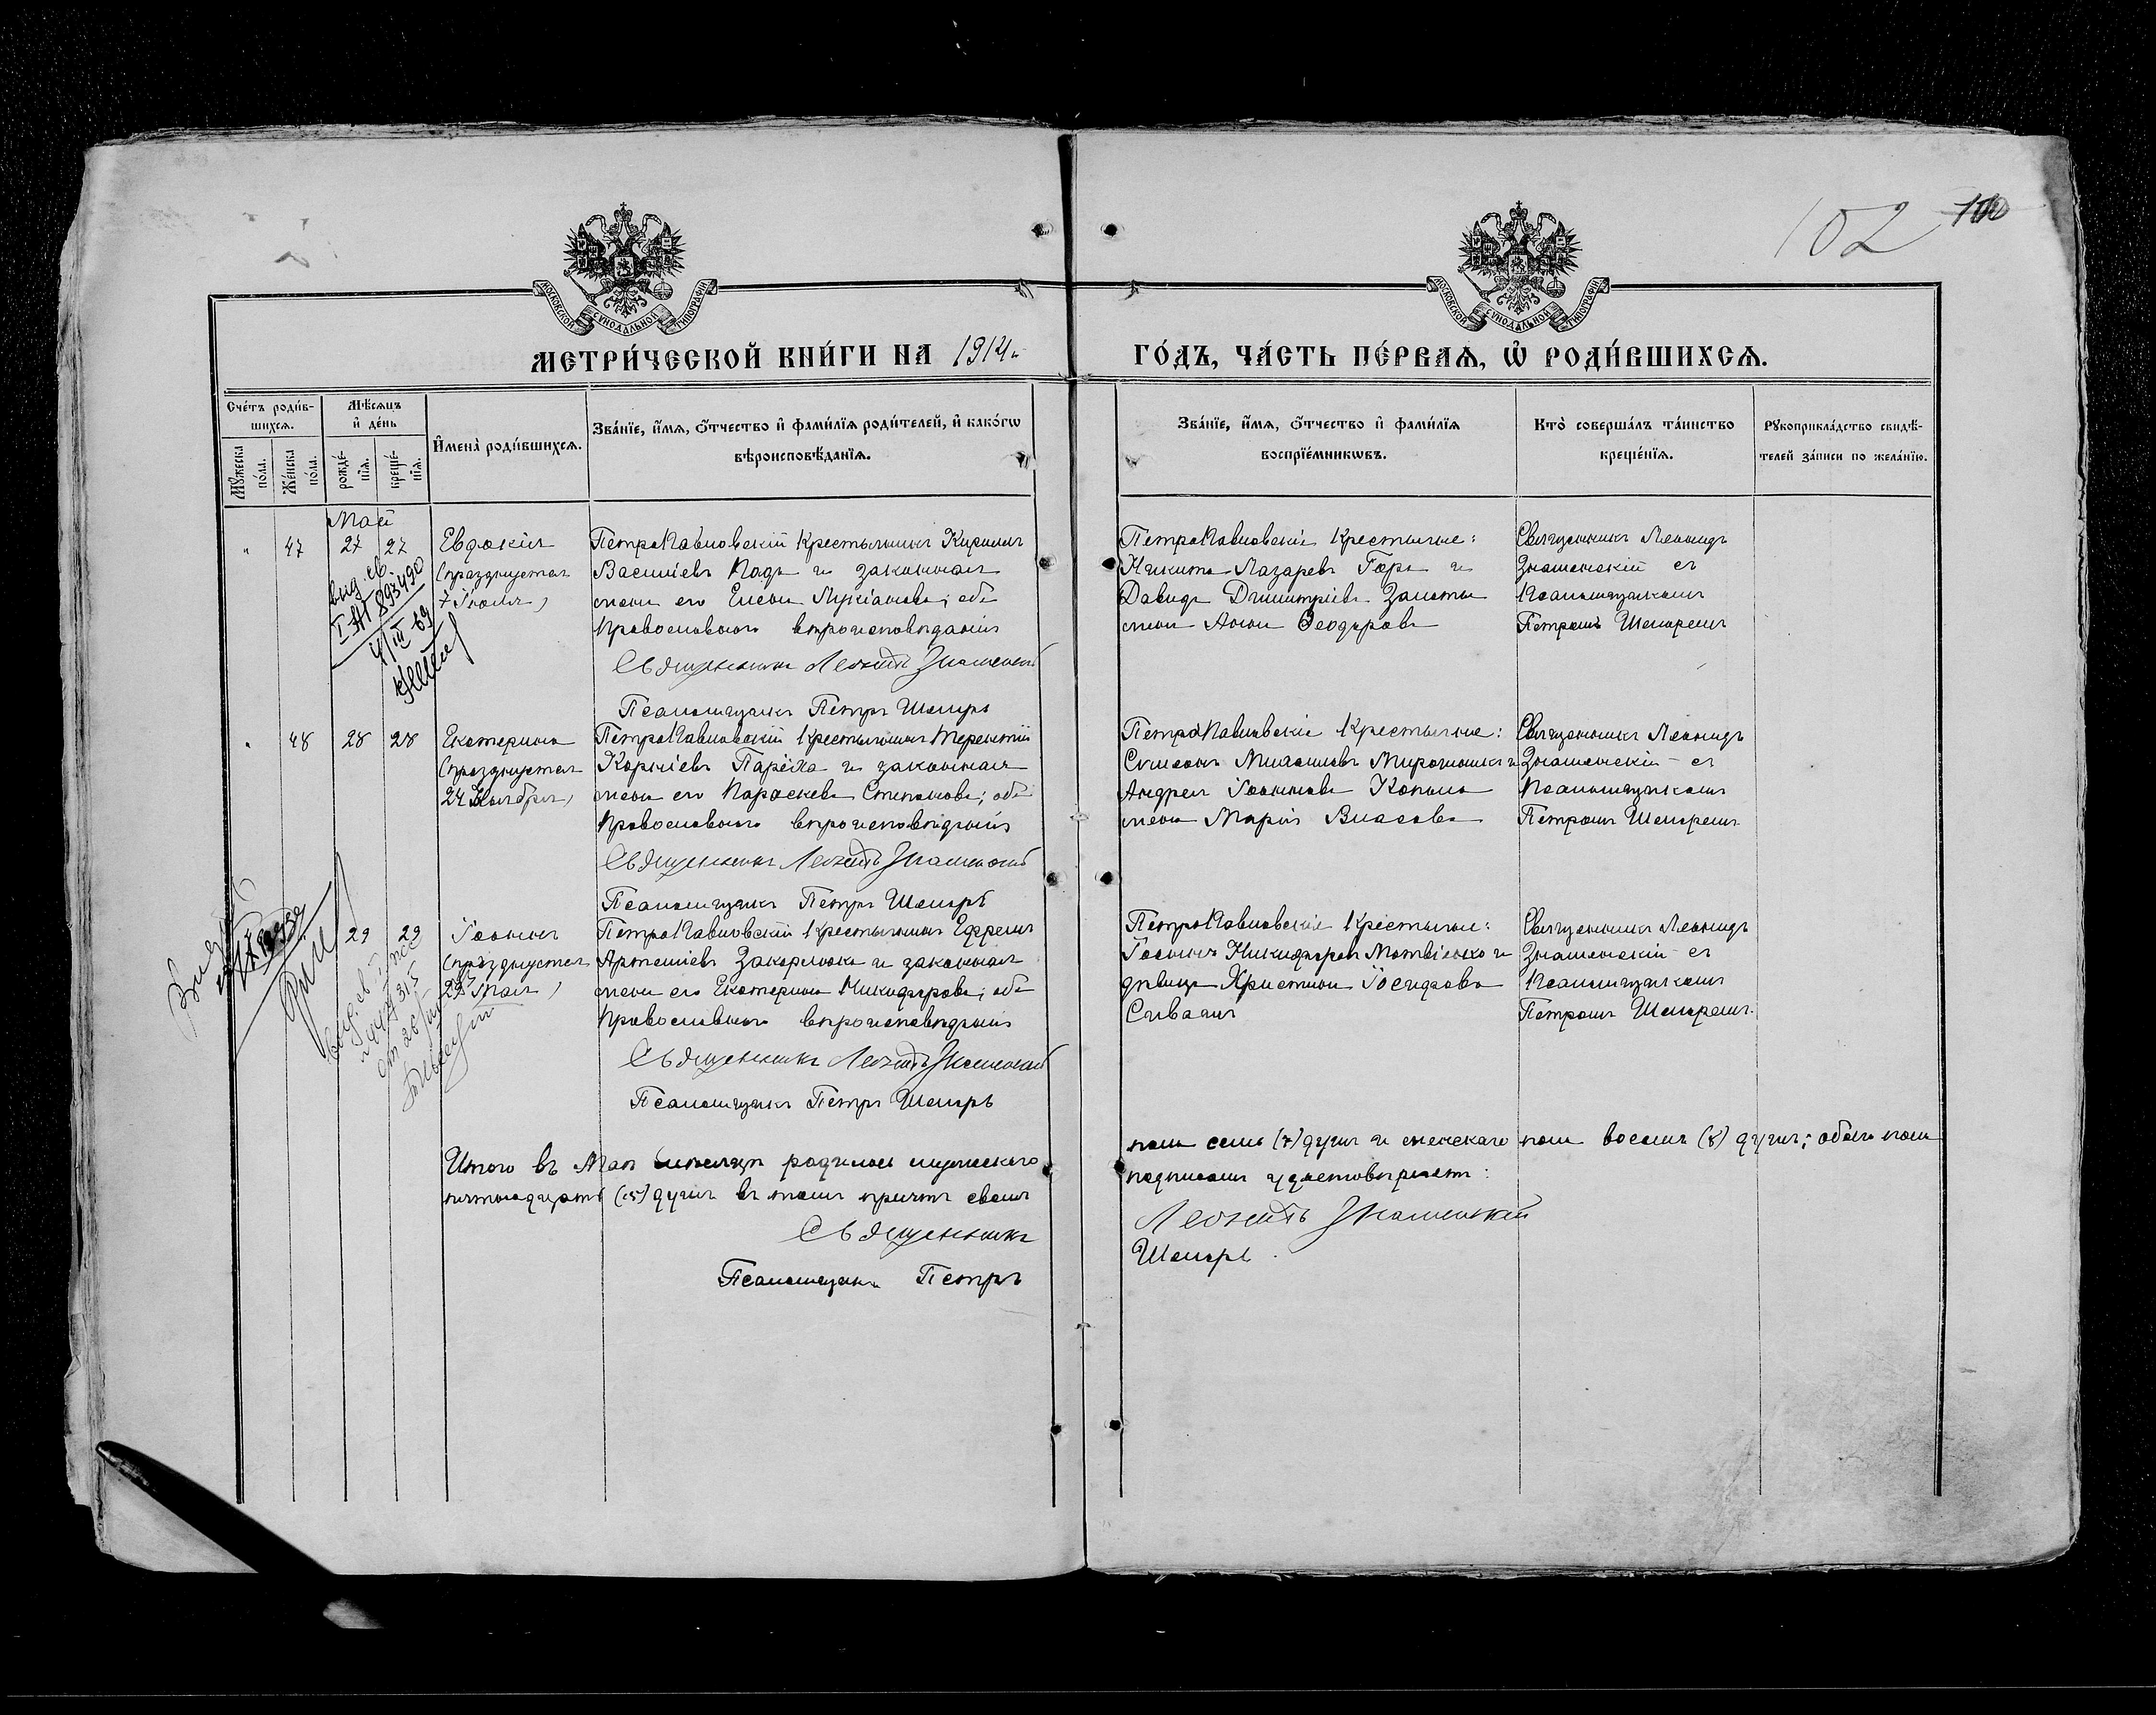 102 100
МОСКОВСКОЙ СУНОДАЛЬНОЙ ТИПОГРАФІИ
МОСКОВСКОЙ СУНОДАЛЬНОЙ ТИПОГРАФІИ
МЕТРИ́ЧЕСКОЙ КНИ́ГИ НА 1914 г.
ГО́ДЪ, ЧА́СТЬ ПЕ́РВАѦ, Ѡ РОДИ́ВШИХСѦ.
Сче́тъ роди́в-
шихсѧ.
Мꙋжеска по́ла.
Же́нска по́ла.
Мѣ́сѧцъ
и҆ де́нь
рожде́-
нїѧ.
креще́-
нїѧ.
И҆мена̀ роди́вшихсѧ.
Зва́нїе, и҆́мѧ, ѻ҆́тчество и҆ фами́лїѧ роди́телей, и҆ како́гѡ
вѣроисповѣ́данїѧ.
Зва́нїе, и҆́мѧ, ѻ҆́тчество и҆ фами́лїѧ
воспрїе́мникѡвъ.
Кто̀ соверша́лъ та́инство
креще́нїѧ.
Рꙋкоприкла́дство свидѣ́-
телей за́писи по жела́нїю.
Май
" 47 27 27
Евдокія
(празднуется
7 Іюля)
Петропавловскій крестьянинъ Кириллъ
Василіевъ и законная
жена его Елена Лукіанова; оба
православнаго вѣроисповѣданія
Священникъ Леонидъ Знаменскій
Псаломщикъ Петръ Шемеръ
Петропавловскіе крестьяне:
Никита Лазаревъ и
Давида Димитріева
жена Анна Ѳеодорова
Священникъ Леонидъ
Знаменскій съ
псаломщикомъ
Петромъ Шемеремъ
выд. св.
893490
4/III 69
" 48 28 28
Екатерина
(празднуется
24 Ноября)
Петропавловскій крестьянинъ Терентій
Корніевъ и законная
жена его Параскева Стефанова; оба
православнаго вѣроисповѣданія
Священникъ Леонидъ Знаменскій
Псаломщикъ Петръ Шемеръ
Петропавловскіе крестьяне:
Симеонъ Мирошникъ и
Андрея Іоаннова
жена Марія Власова
Священникъ Леонидъ
Знаменскій – съ
псаломщикомъ
Петромъ Шемеремъ
29 29
Іоаннъ
(празднуется
29 Мая)
Петропавловскій крестьянинъ Ефремъ
Артеміевъ и законная
жена его Екатерина Никифорова; оба
православнаго вѣроисповѣданія
Священникъ Леонидъ Знаменскій
Псаломщикъ Петръ Шемеръ
Петропавловскіе крестьяне:
Іоаннъ Никифоровъ Матвіенко и
дѣвица Христина Іосифова
Священникъ Леонидъ
Знаменскій – съ
псаломщикомъ
Петромъ Шемеремъ.
Итого въ Маѣ мѣсяцѣ родилось мужескаго
пола семь (7) душъ и женскаго пола восемь (8) душъ; обоего пола
пятнадцать (15) душъ въ чемъ причтъ своимъ
подписомъ удостовѣряетъ:
Священникъ Леонидъ Знаменскій
Псаломщикъ Петръ Шемеръ.